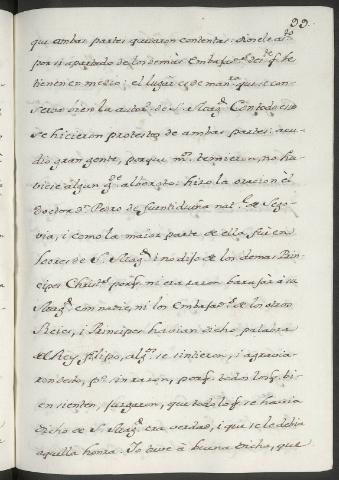 99.
que ambas partes quedaron contentas: dioseles ass.to
por si apartado de los demas Embaxad.es de su s.te q.
tienen en medio: el lugar es de man.ra que se con
servo bien la autor.d de S. Mag.d Con todo esso
se hicieron protestos de ambas partes: acu
dio gran gente, por su m.o temieron, no hu
viese algun g.de alboroto: hizo la oracion el
Doctor d.n Pedro de Fuentidueña nat.l de Sego
via, i como la maior parte de ella fue en
loores de S. Mag.d i no dijo de los demas Prin
cipes Christ.s porq. ni era razon barajar à su
Mag.d con nadie, ni los Embaxad.s de los otros
Reies, i Principes havian dicho palabra
del Rey Felipo, alg.s se sintieron, i agravia
ron dello, p.o sin razon, porq. todos los q. bi
en sienten, juzgaron, que todo lo q. se havia
dicho de S. Mag.d era verdad, i que se le debia
aquella honra. Io tuve à buena dicha, que